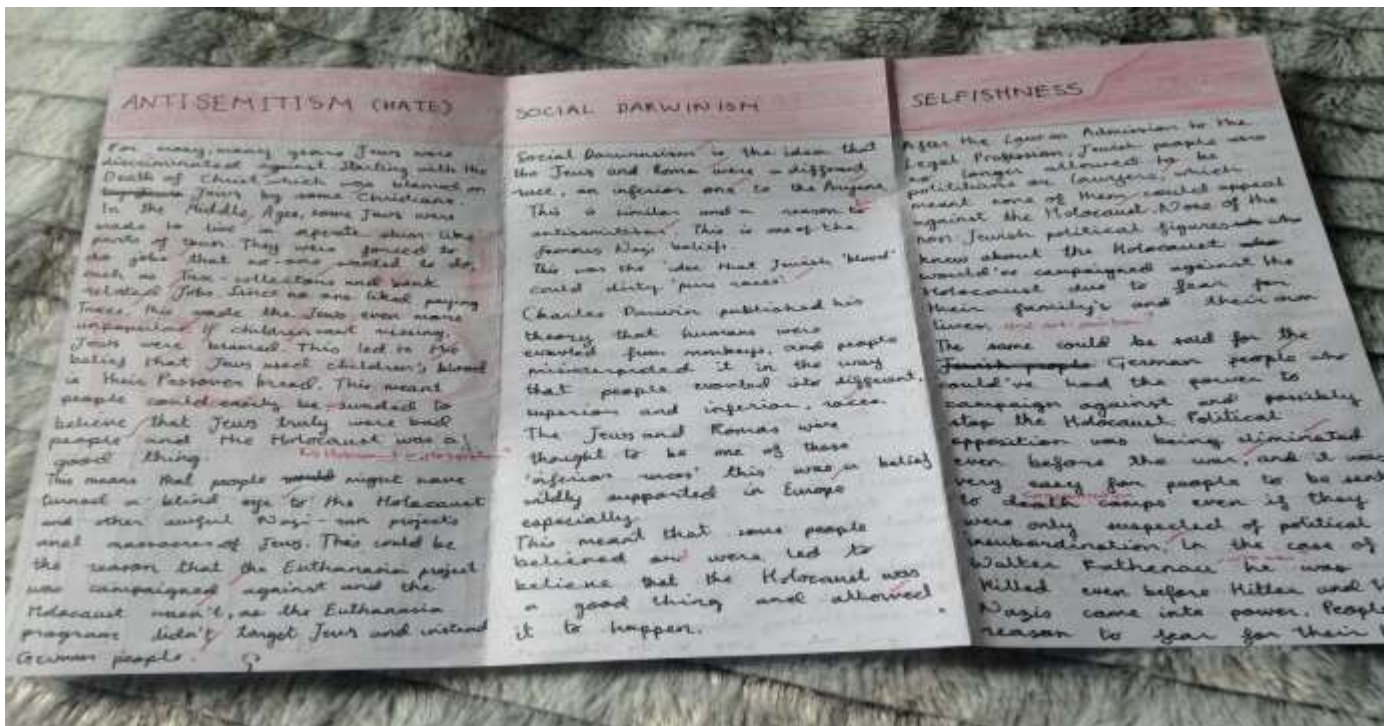 ANTISEMITISM (HATE)
For many, many years Jews were
discriminated against starting with the
Death of Christ which was blamed on
Jews by some Christians.
In the Middle Ages, some Jews were
made to live in
parts of town They were forced to
do jobs that no-one wanted to do,
such as Tax-collectors and bank
related Jobs. Since no one liked paying
Taxes, this made the Jews even more
unpopular If children went missing,
Jews were blamed. This led to the
belief that Jews used children's blood
in their Passover bread. This meant
people could easily be to
believe that Jews truly were bad
people and the Holocaust was a
good thing.
This means that people would might have
turned a blind eye to the Holocaust
and other awful Nazi-run projects
and massacres of Jews. This could be
the reason that the Euthanasia project
was campaigned against and the
Holocaust wasn't, as the Euthanasia
programe didn't target Jews and instead
German people.
SOCIAL DARWINISM
Social Darwinism is the idea that
the Jews and Roma were a different
race, an inferior one to the
This is similar and a reason to
antisemitism. This is one of the
famous Nazi beliefs.
This was the idea that Jewish 'blood'
could dirty 'pure races'.
Charles Darwin published his
theory that humans were
from monkeys, and people
misinterpreted it in the way
that people into different,
superior and inferior, races
The Jews and Romas were
thought to be one of these
'inferior races' this was a belief
supported in Europe
especially.
This meant that some people
believed or were led to
believe that the Holocaust was
a good thing and allowed
it to happen.
SELFISHNESS
After the Law on Admission to the
Legal Profession, Jewish people were
no longer allowed to be
or lawyers, which
meant none of them could appeal
against the Holocaust. None of the
non Jewish political figures who
knew about the Holocaust who
would've campaigned against the
Holocaust due to fear for
their family's and their own
lives.
The same could be said for the
Jewish people German people who
could've had the power to
campaign against and possibly
stop the Holocaust Political
opposition was being eliminated
even before the war, and it was
very easy for people to be sent
to death camps even if they
were only suspected of political
insubordination. In the case of
Walter Rathenau he was
killed even before Hitler and
Nazis came into power. People
reason to fear for their